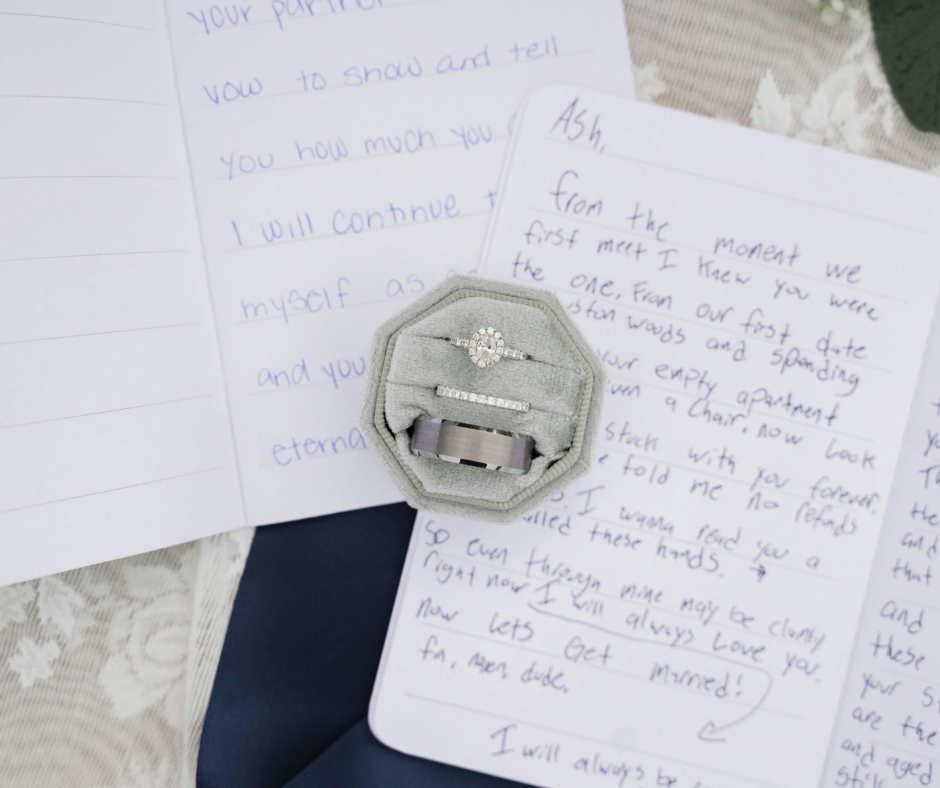 your partner
vow to show and tell
you how much you
I will continue
myself as
and you
eterna
Ash,
from the moment we
first meet I knew you were
the one. From our first date
ston woods and spending
your empty apartment
ven a chair. now look
stuck with you forever.
e told me no refunds
I wanna read you a
alled these hands.
so even through mine may be clamy
right now I will always love you.
now lets Get married!
I will always be
and
that
and
these
your
are the
and aged
still